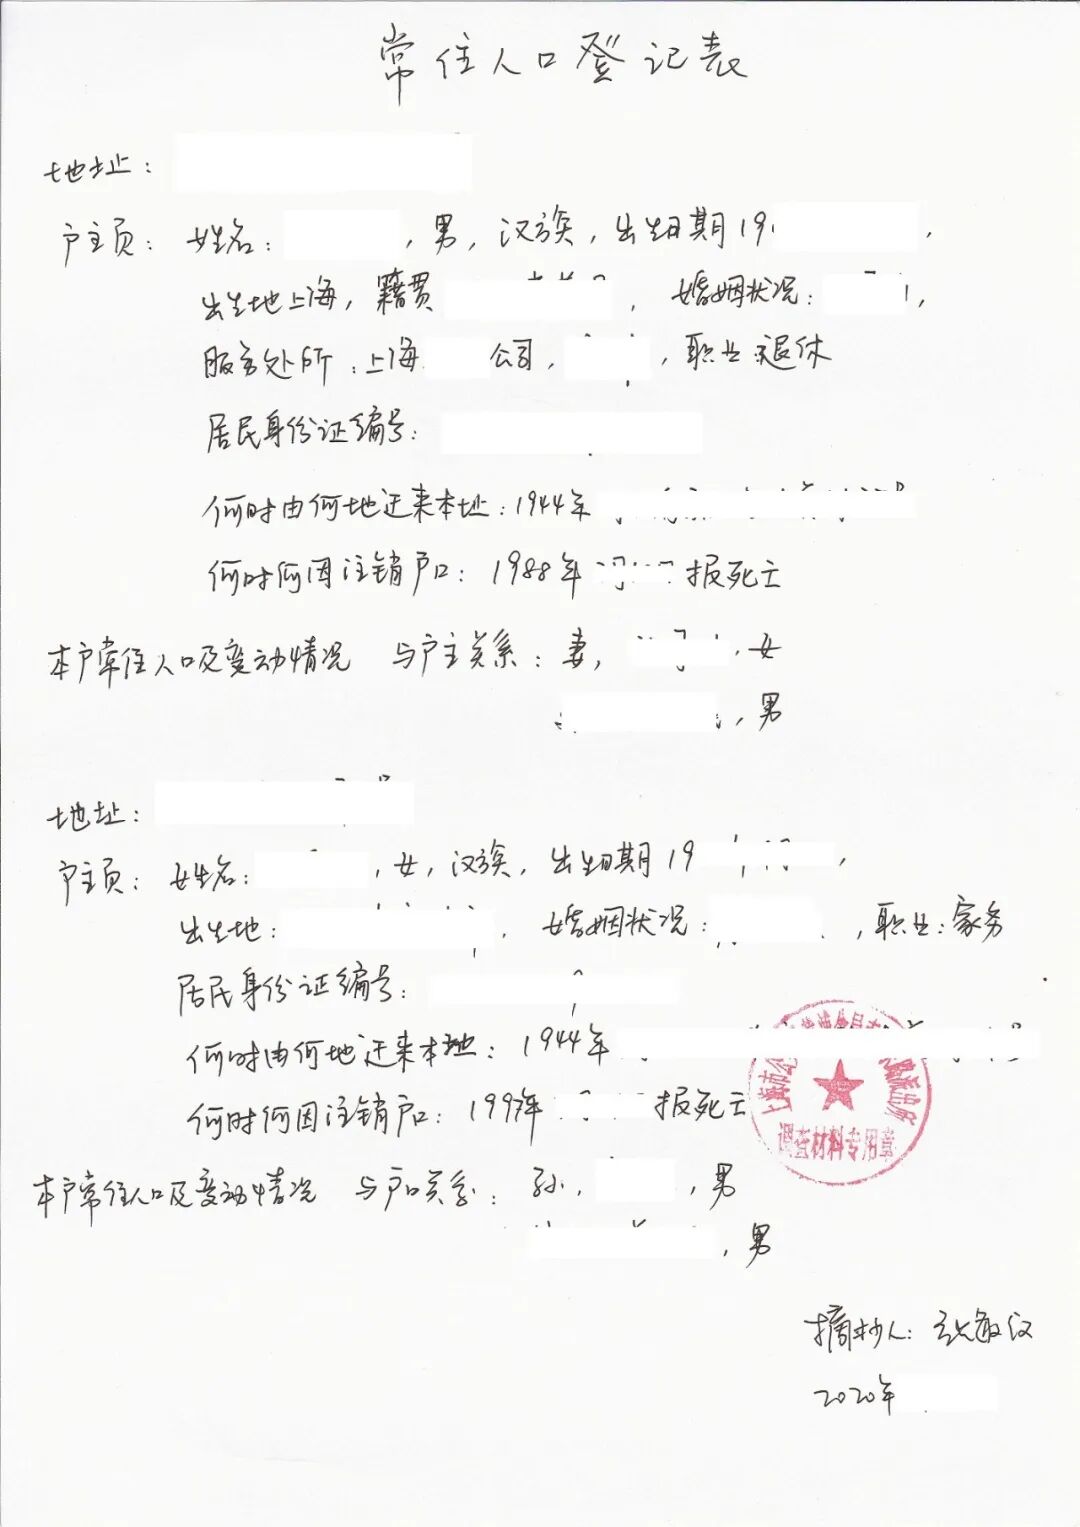 常住人口登记表
地址:
户主页: 姓名: ,男,汉族,出生日期19 ,
出生地上海,籍贯 , 婚姻状况: ,
服务处所:上海 公司, ,职业:退休
居民身份证编号:
何时由何地迁来本址:1944年
何时何因注销户口: 1988年 报死亡
本户常住人口及变动情况 与户主关系: 妻, ,女
,男
地址:
户主页: 姓名: ,女,汉族,出生日期19 ,
出生地: , 婚姻状况: ,职业:家务
居民身份证编号:
何时由何地迁来本地: 1944年
何时何因注销户口: 1997年 报死亡
上海市公
派出所
调查材料专用章
本户常住人口及变动情况 与户口关系: 孙, ,男
,男
摘抄人: 张敏仪
2020年